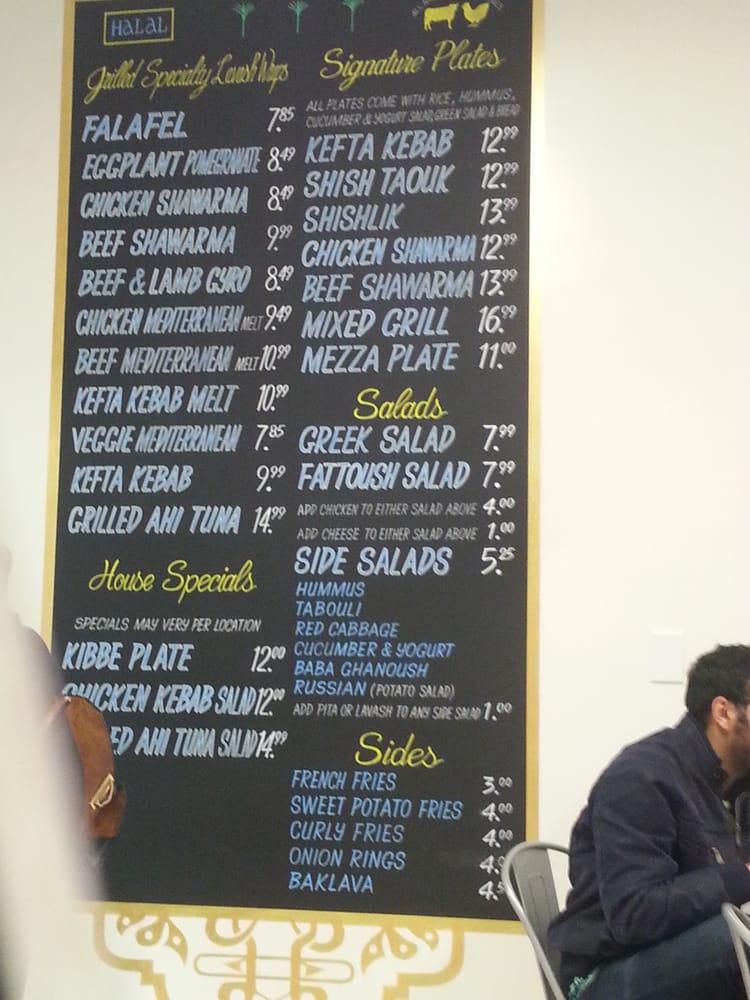 HALAL
Grilled Specialty Lavash Wraps
FALAFEL 7.85
EGGPLANT POMEGRANATE 8.49
CHICKEN SHAWARMA 8.49
BEEF SHAWARMA 9.99
BEEF & LAMB GYRO 8.49
CHICKEN MEDITERRANEAN MELT 9.49
BEEF MEDITERRANEAN MELT 10.99
KEFTA KEBAB MELT 10.99
VEGGIE MEDITERRANEAN 7.85
KEFTA KEBAB 9.99
GRILLED AHI TUNA 14.99
House Specials
SPECIALS MAY VERY PER LOCATION
KIBBE PLATE 12.00
CHICKEN KEBAB SALAD 12.00
ED AHI TUNA SALAD 14.99
Signature Plates
ALL PLATES COME WITH RICE, HUMMUS,
CUCUMBER & YOGURT SALAD, GREEN SALAD & BREAD
KEFTA KEBAB 12.99
SHISH TAOUK 12.99
SHISHLIK 13.99
CHICKEN SHAWARMA 12.99
BEEF SHAWARMA 13.99
MIXED GRILL 16.99
MEZZA PLATE 11.00
Salads
GREEK SALAD 7.99
FATTOUSH SALAD 7.99
ADD CHICKEN TO EITHER SALAD ABOVE 4.00
ADD CHEESE TO EITHER SALAD ABOVE 1.00
SIDE SALADS 5.25
HUMMUS
TABOULI
RED CABBAGE
CUCUMBER & YOGURT
BABA GHANOUSH
RUSSIAN (POTATO SALAD)
ADD PITA OR LAVASH TO ANY SIDE SALAD 1.00
Sides
FRENCH FRIES 3.00
SWEET POTATO FRIES 4.00
CURLY FRIES 4.00
ONION RINGS
BAKLAVA